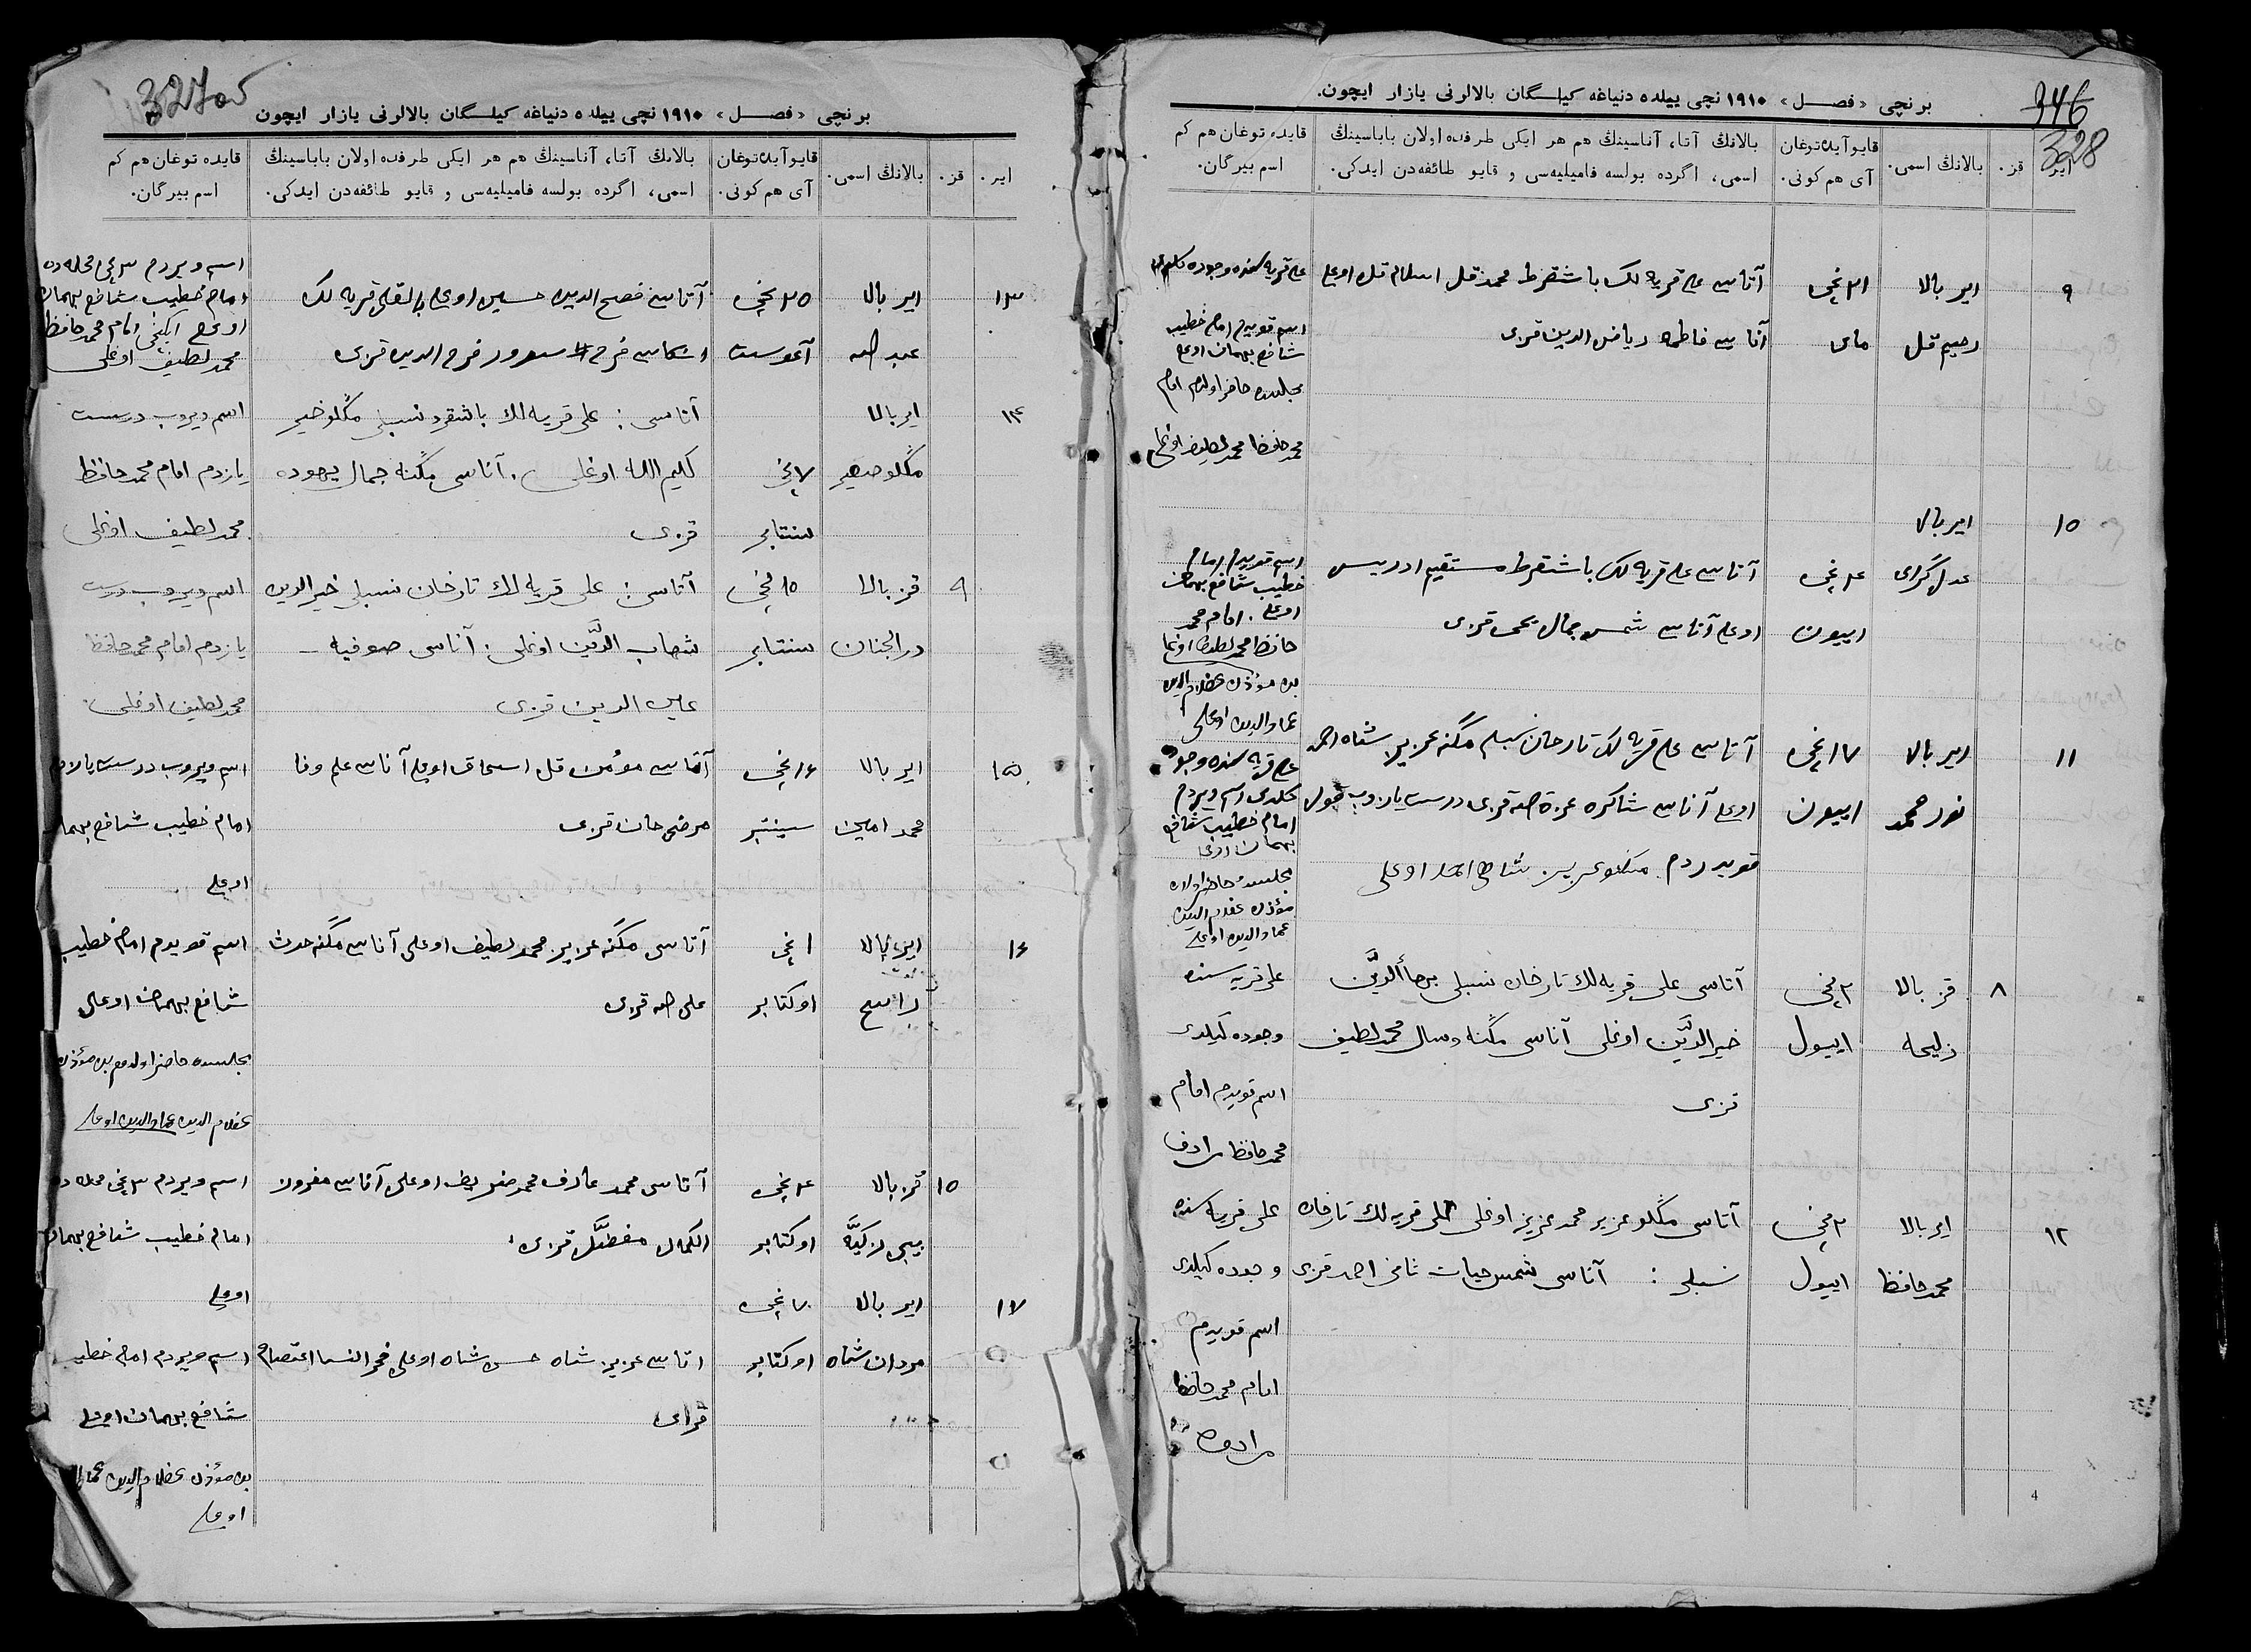 346
328
برنچی «فصل» ۱۹۱۰ نچی ییلده دنیاغه کیلگان بالالرنی یازار ایچون.
ایر
قز.
بالانڭ اسمی.
قایو آیده توغان
آی هم کونی.
بالانڭ آتا، آناسینڭ هم هر ایکی طرفده اولان باباسینڭ
اسمی، اگرده بولسه فامیلیه‌سی و قایو طائفه‌دن ایدکی.
قایده توغان هم کم
اسم بیرگان.
۹ ایر بالا ۳۱ نچی آتاسی علی قریه لک باشقرط محمد قل اسلام قل اوغلی
رحیم قل مای آناسی فاطمه ریاض الدین قزی
اسم قویدم امام خطیب
شافع بهمان اوغلی
مجلسده حاضر اولدم امام
محمد حافظ محمد لطیف اوغلی
۱۰ ایر بالا
عدل گرای ۴ نچی آتاسی علی قریه لک باشقرط مستقیم ادریس
اییون اوغلی آناسی شمس جمال یحیی قزی
اسم قویدم امام
خطیب شافع بهمان
اوغلی. امام محمد
حافظ محمد لطیف اوغلی
۱۱ ایر بالا ۱۷ نچی آتاسی علی قریه لک تارخان نسبلی مڭله عزیز شاه احمد
نور محمد اییون اوغلی آناسی شاکره عزة الله قزی درست یازوب قول
قویدردم
علی قریه سنده وجوده
کلدی اسم ویردم
امام خطیب شافع
بهمان اوغلی
مجلسده حاضر اولان
مؤذن
عماد الدین اوغلی
۸ قز بالا ۲ نچی آتاسی علی قریه لك تارخان نسبلی بهأ الدّین علی قریه سنده
زلیحه اییول خیر الدّین اوغلی آناسی مڭنه وصال محمد لطیف وجوده کیلدی
قزی اسم قویدم امام
محمد حافظ
۱۲ ایر بالا ۲ نچی آتاسی مڭلو عزیز محمد عزیز اوغلی علی قریه لك تارخان علی قریه سنده
محمد حافظ اییول نسبلی : آناسی شمس حیات احمد قزی وجوده کیلدی
اسم قویدم
امام محمد حافظ
4
327
برنچی «فصل» ۱۹۱۰ نچی ییلده دنیاغه کیلگان بالالرنی یازار ایچون
ایر.
قز.
بالانڭ اسمی.
قایو آیده توغان
آی هم کونی.
بالانڭ آتا، آناسینڭ هم هر ایکی طرفده اولان باباسینڭ
اسمی، اگرده بولسه فامیلیه‌سی و قایو طائفه‌دن ایدکی.
قایده توغان هم کم
اسم بیرگان.
۱۳ ایر بالا ۲۵ نچی آتاسی فصح الدین حسین اوغلی قریه لک
عبد الله آغوست
اسم ویردم ۳ نچی محله ده
امام خطیب شافع بهمان
اوغلی ایکنچی امام محمد حافظ
محمد لطیف اوغلی
۱۴ ایر بالا آتاسی : علی قریه لك باشقرد نسبلی مڭلو خیر اسم ویروب درست
۷ نچی کلیم الله اوغلی. آناسی مڭنه جمال یهوده یازدم امام محمد حافظ
سنتابر قزی محمد لطیف اوغلی
۹ قز بالا ۱۵ نچی آتاسی : علی قریه لك تارخان نسبلی خیر الدین اسم ویروب درست
در الجنان سنتابر شهاب الدّین اوغلی. آناسی صوفیه یازدم امام محمد حافظ
عین الدین قزی محمد لطیف اوغلی.
۱۵ ایر بالا ۱۶ نچی آتاسی مؤمن قل اسحاق اوغلی آناسی علم وفا اسم ویروب درست یازدم
محمد امین سینتبر مرضی جان قزی امام خطیب شافع بهمان
اوغلی
۱۶ ایر بالا ۱ نچی آتاسی مڭنه عزیز محمد لطیف اوغلی آناسی مڭنه حدث اسم قویدم امام خطیب
راسخ اوکتابر علی الله قزی شافع بهمان اوغلی
مجلسده حاضر اولدم بن مؤذن
عماد الدین اوغلی
۱۰ قز بالا ۴ نچی آتاسی محمد عارف محمد شریف اوغلی آناسی اسم ویردم ۳ نچی محله ده
بیبی زکیّه اوکتابر الکمال مفضّل قزی امام خطیب شافع بهمان
۱۷ ایر بالا ۷ نچی اوغلی
مردان شاه اوکتابر آتاسی عزیز شاه حسن شاه اوغلی فخر النسا اعتصام اسم ویردم امام خطیب
قزی شافع بهمان اوغلی
بن مؤذن
اوغلی